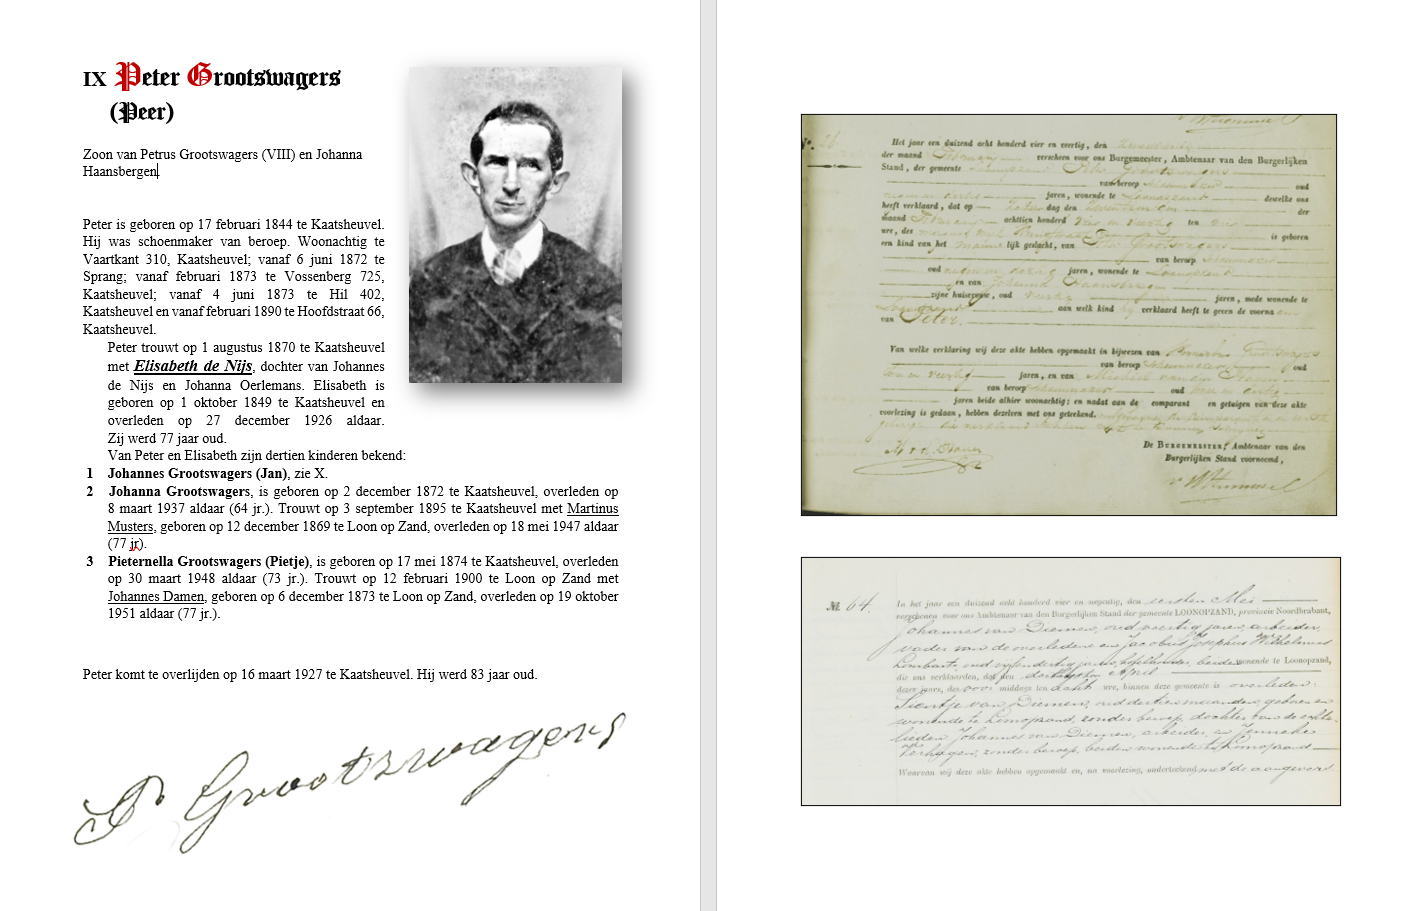 IX Peter Grootswagers
(Peer)
Zoon van Petrus Grootswagers (VIII) en Johanna
Haansbergen
Peter is geboren op 17 februari 1844 te Kaatsheuvel.
Hij was schoenmaker van beroep. Woonachtig te
Vaartkant 310, Kaatsheuvel; vanaf 6 juni 1872 te
Sprang; vanaf februari 1873 te Vossenberg 725,
Kaatsheuvel; vanaf 4 juni 1873 te Hil 402,
Kaatsheuvel en vanaf februari 1890 te Hoofdstraat 66,
Kaatsheuvel.
Peter trouwt op 1 augustus 1870 te Kaatsheuvel
met Elisabeth de Nijs, dochter van Johannes
de Nijs en Johanna Oerlemans. Elisabeth is
geboren op 1 oktober 1849 te Kaatsheuvel en
overleden op 27 december 1926 aldaar.
Zij werd 77 jaar oud.
Van Peter en Elisabeth zijn dertien kinderen bekend:
1 Johannes Grootswagers (Jan), zie X.
2 Johanna Grootswagers, is geboren op 2 december 1872 te Kaatsheuvel, overleden op
8 maart 1937 aldaar (64 jr.). Trouwt op 3 september 1895 te Kaatsheuvel met Martinus
Musters, geboren op 12 december 1869 te Loon op Zand, overleden op 18 mei 1947 aldaar
(77 jr).
3 Pieternella Grootswagers (Pietje), is geboren op 17 mei 1874 te Kaatsheuvel, overleden
op 30 maart 1948 aldaar (73 jr.). Trouwt op 12 februari 1900 te Loon op Zand met
Johannes Damen, geboren op 6 december 1873 te Loon op Zand, overleden op 19 oktober
1951 aldaar (77 jr.).
Peter komt te overlijden op 16 maart 1927 te Kaatsheuvel. Hij werd 83 jaar oud.
P Grootswagers
Het jaar een duizend acht honderd vier en veertig, den
der maand Februarij verscheen voor ons Burgemeester, Ambtenaar van den Burgerlijken
Stand, der gemeente Loonopzand Peter Grootswagers
van beroep oud
jaren, wonende te Loonopzand dewelke ons
heeft verklaard, dat op dag den der
maand Februarij achttien honderd vier en veertig ten
ure, des is geboren
een kind van het lijk geslacht, van Peter Grootswagers
van beroep
oud jaren, wonende te Loonopzand
en van Johanna Haansbergen
zijne huisvrouw, oud jaren, mede wonende te
Loonopzand aan welk kind hij verklaard heeft te geven de voorna
van Peter.
Van welke verklaring wij deze akte hebben opgemaakt in bijwezen van Grootswagers
van beroep oud
en veertig jaren, en van
van beroep oud
jaren beide alhier woonachtig; en nadat aan de comparant en getuigen van deze akte
voorlezing is gedaan, hebben dezelven met ons geteekend.
De BURGEMEESTER, Ambtenaar van den
Burgerlijken Stand voornoemd,
No. 64.
In het jaar een duizend acht honderd vier en negentig, den eersten Mei
verschenen voor ons Ambtenaar van den Burgerlijken Stand der gemeente LOONOPZAND, provincie Noordbrabant,
Johannes van Diemen, oud veertig jaren, arbeider,
vader van de overledene en Jacobus Josephus Wilhelmus
Lombarts oud jaren, beiden wonende te Loonopzand,
die ons verklaarden, dat den dertigsten April
dezer jaren, des voor middags ten acht ure, binnen deze gemeente is overleden:
Sientje van Diemen, oud dertien maanden, geboren en
wonende te Loonopzand, zonder beroep, dochter van de echte-
lieden Johannes van Diemen, arbeider, en
Verhagen, zonder beroep, beiden wonende te Loonopzand
Waarvan wij deze akte hebben opgemaakt en, na voorlezing, onderteekend met de aangevers